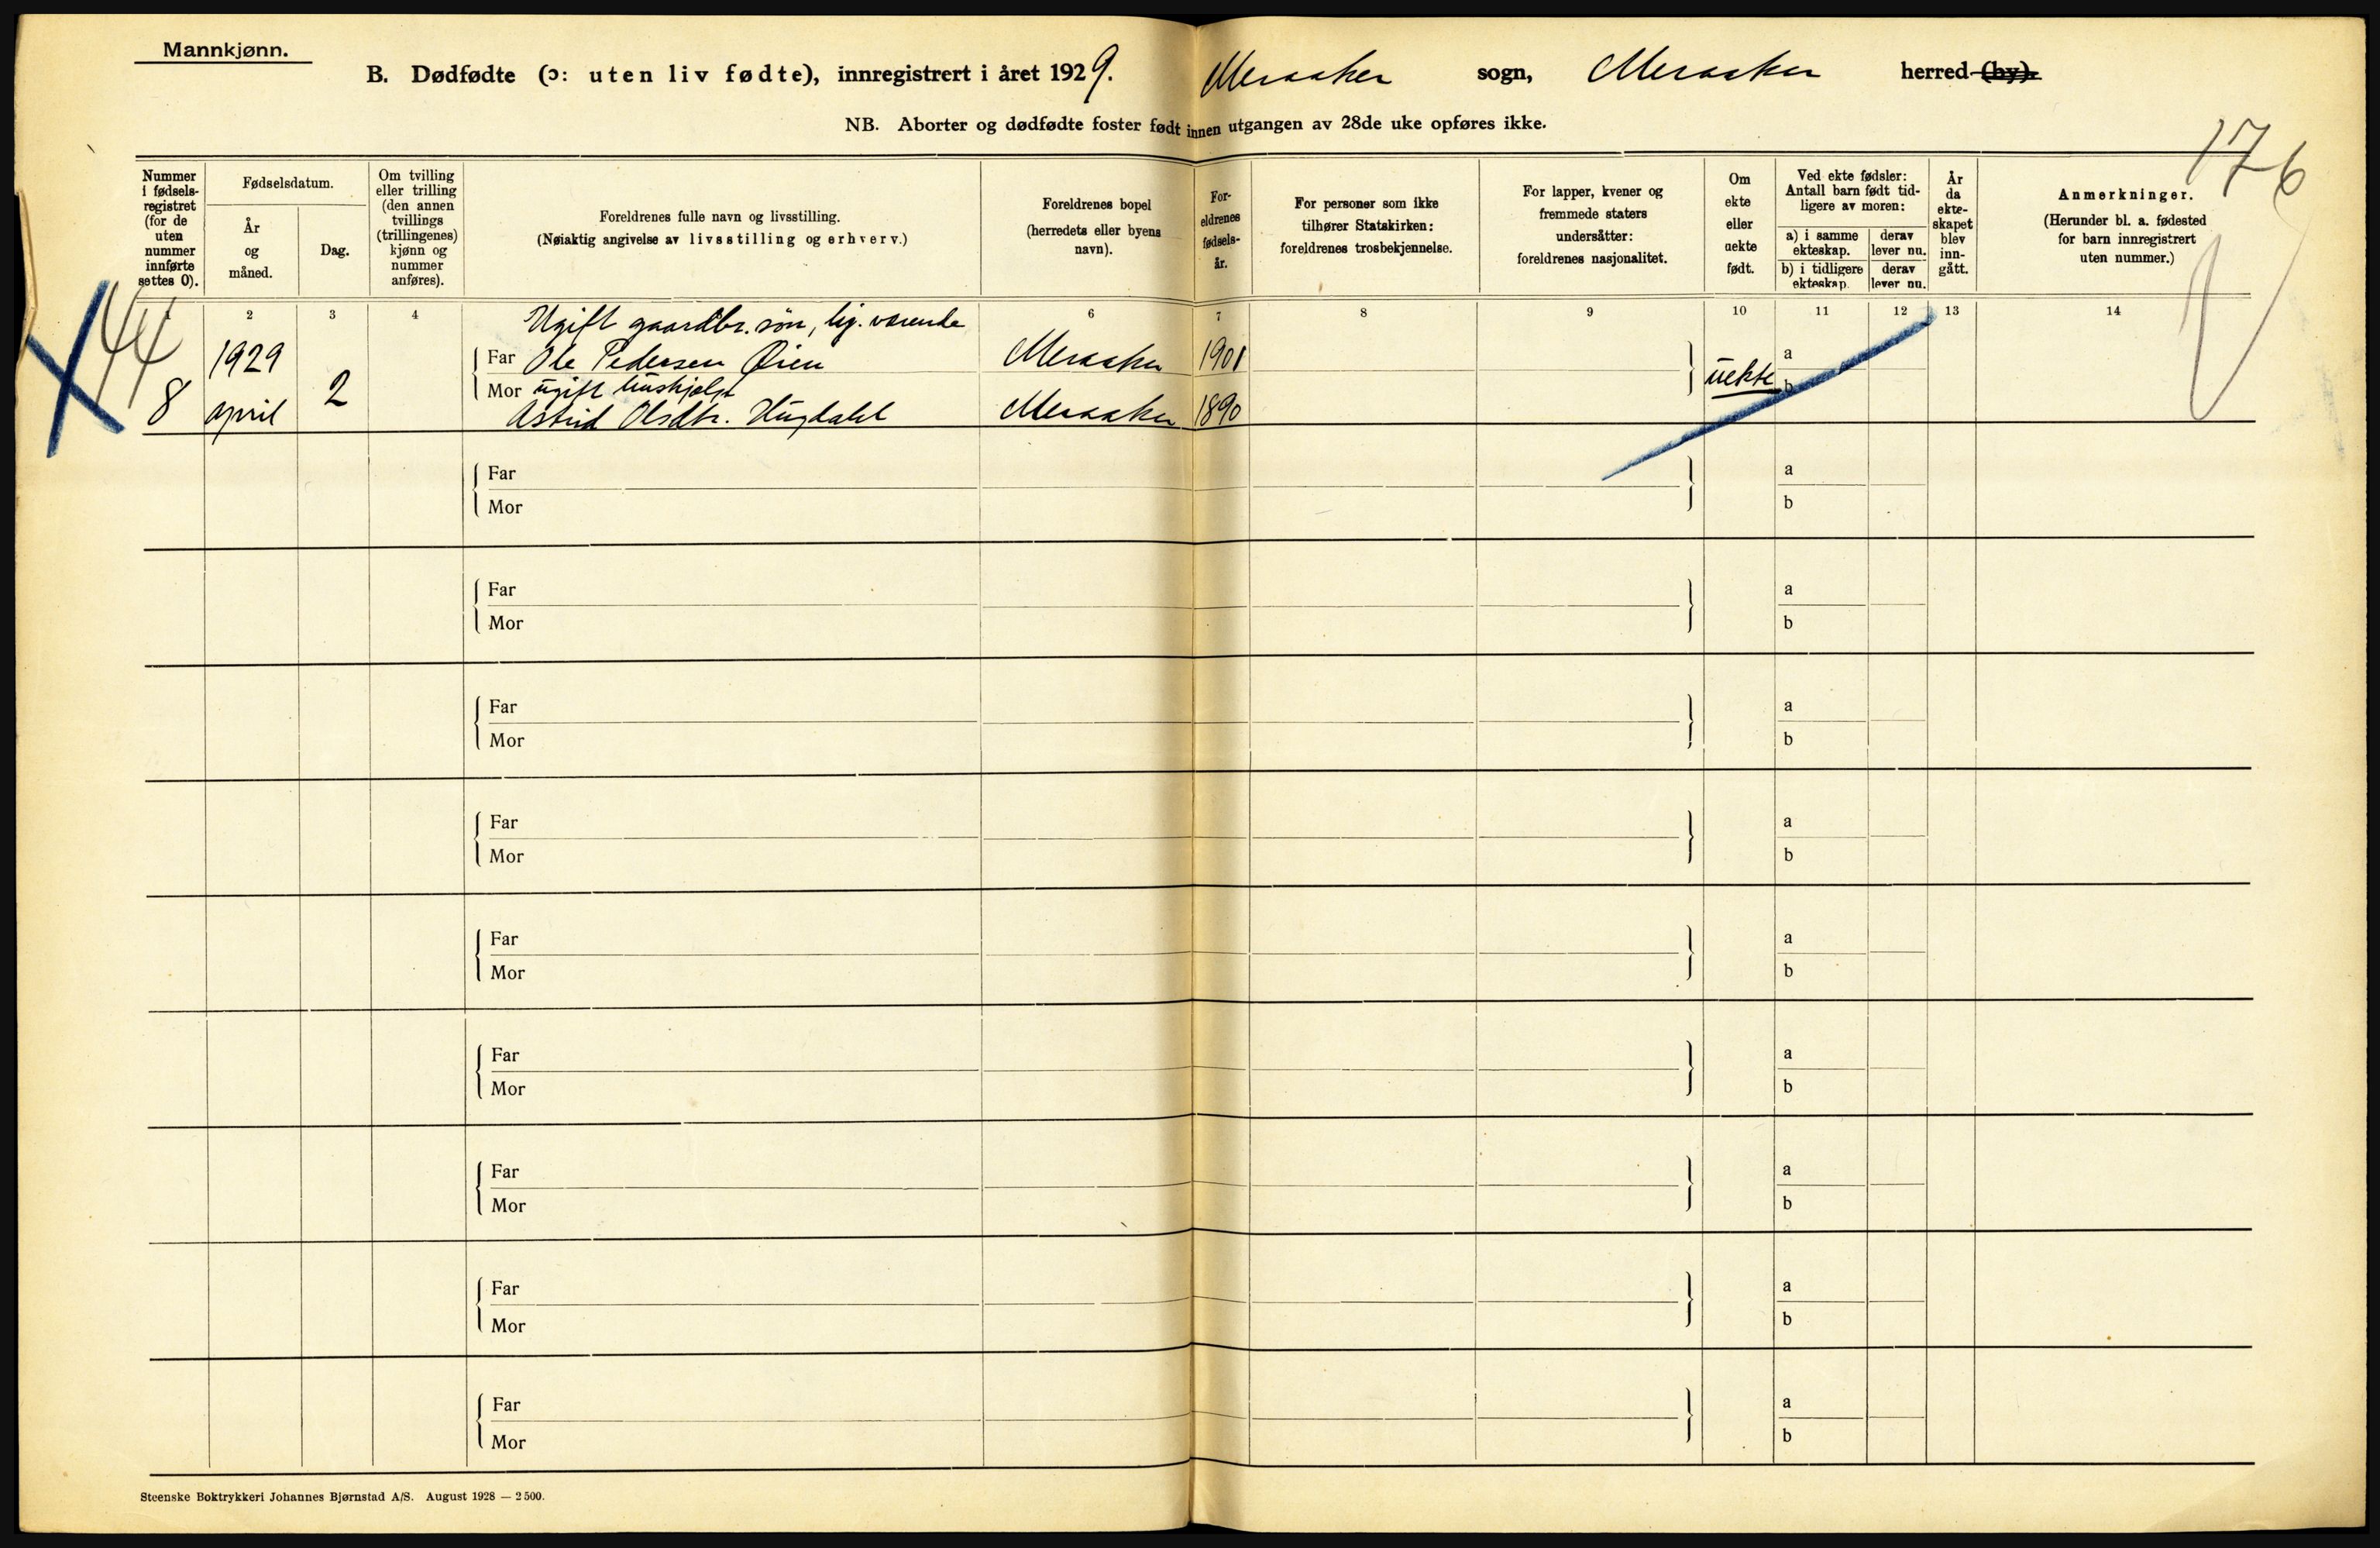 Mannkjønn.
B. Dødfødte (ɔ: uten liv fødte), innregistrert i året 1929. Meraaker sogn, Meraaker herred (by).
NB. Aborter og dødfødte foster født innen utgangen av 28de uke opføres ikke.
176
Nummer i fødsels-registret (for de uten nummer innførte settes 0).
Fødselsdatum.
År og måned.
Dag.
Om tvilling eller trilling (den annen tvillings (trillingenes) kjønn og nummer anføres).
Foreldrenes fulle navn og livsstilling.
(Nøiaktig angivelse av livsstilling og erhverv.)
Foreldrenes bopel (herredets eller byens navn).
For-eldrenes fødsels-år.
For personer som ikke tilhører Statskirken: foreldrenes trosbekjennelse.
For lapper, kvener og fremmede staters undersåtter: foreldrenes nasjonalitet.
Om ekte eller uekte født.
Ved ekte fødsler: Antall barn født tid-ligere av moren:
a) i samme ekteskap. derav lever nu.
b) i tidligere ekteskap. derav lever nu.
År da ekte-skapet blev inn-gått.
Anmerkninger.
(Herunder bl. a. fødested for barn innregistrert uten nummer.)
1 2 3 4 6 7 8 9 10 11 12 13 14
44
Ugift gaardbr. søn, lig. værende
1929 Far Ole Pedersen Øien Meraaker 1901 a
8 april 2 Mor ugift hushjelp uekte b
Astrid Olsdtr. Hugdahl Meraaker 1890
Far a
Mor b
Far a
Mor b
Far a
Mor b
Far a
Mor b
Far a
Mor b
Far a
Mor b
Far a
Mor b
Far a
Mor b
Far a
Mor b
Steenske Boktrykkeri Johannes Bjørnstad A/S. August 1928 — 2500.